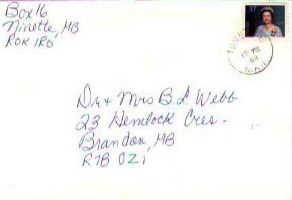 Box 16
Ninette, MB
R0K 1R0
37
Dr & Mrs B.L. Webb
23 Hemlock Cres.
Brandon, MB
R7B 0Z1